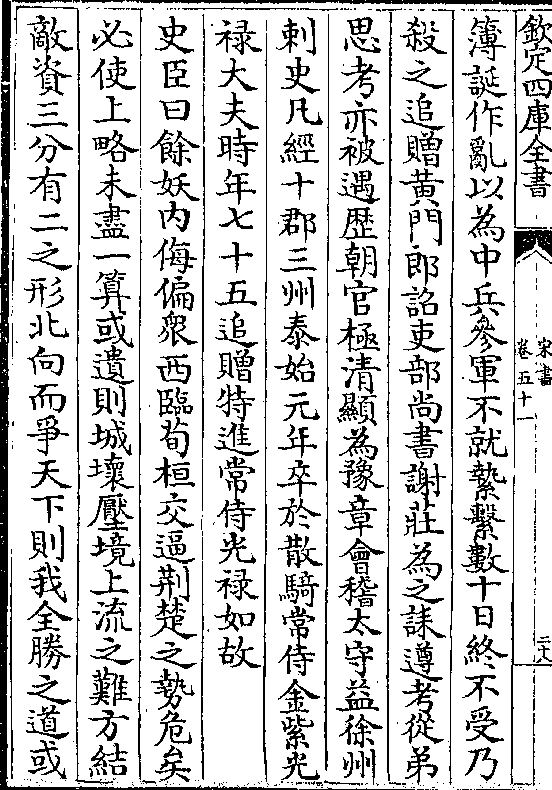 欽定四庫全書
宋書
卷五十一
二十八
簿誕作亂以為中兵參軍不就縶繫數十日終不受乃
殺之追贈黄門郎詔吏部尚書謝莊為之誄遵考從弟
思考亦被遇歴朝官極清顯為豫章會稽太守益徐州
刺史凡經十郡三州泰始元年卒於散騎常侍金紫光
禄大夫時年七十五追贈特進常侍光禄如故
史臣曰餘妖内侮偏衆西臨荀桓交逼荆楚之勢危矣
必使上略未盡一算或遺則城壞壓境上流之難方結
敵資三分有二之形北向而爭天下則我全勝之道或